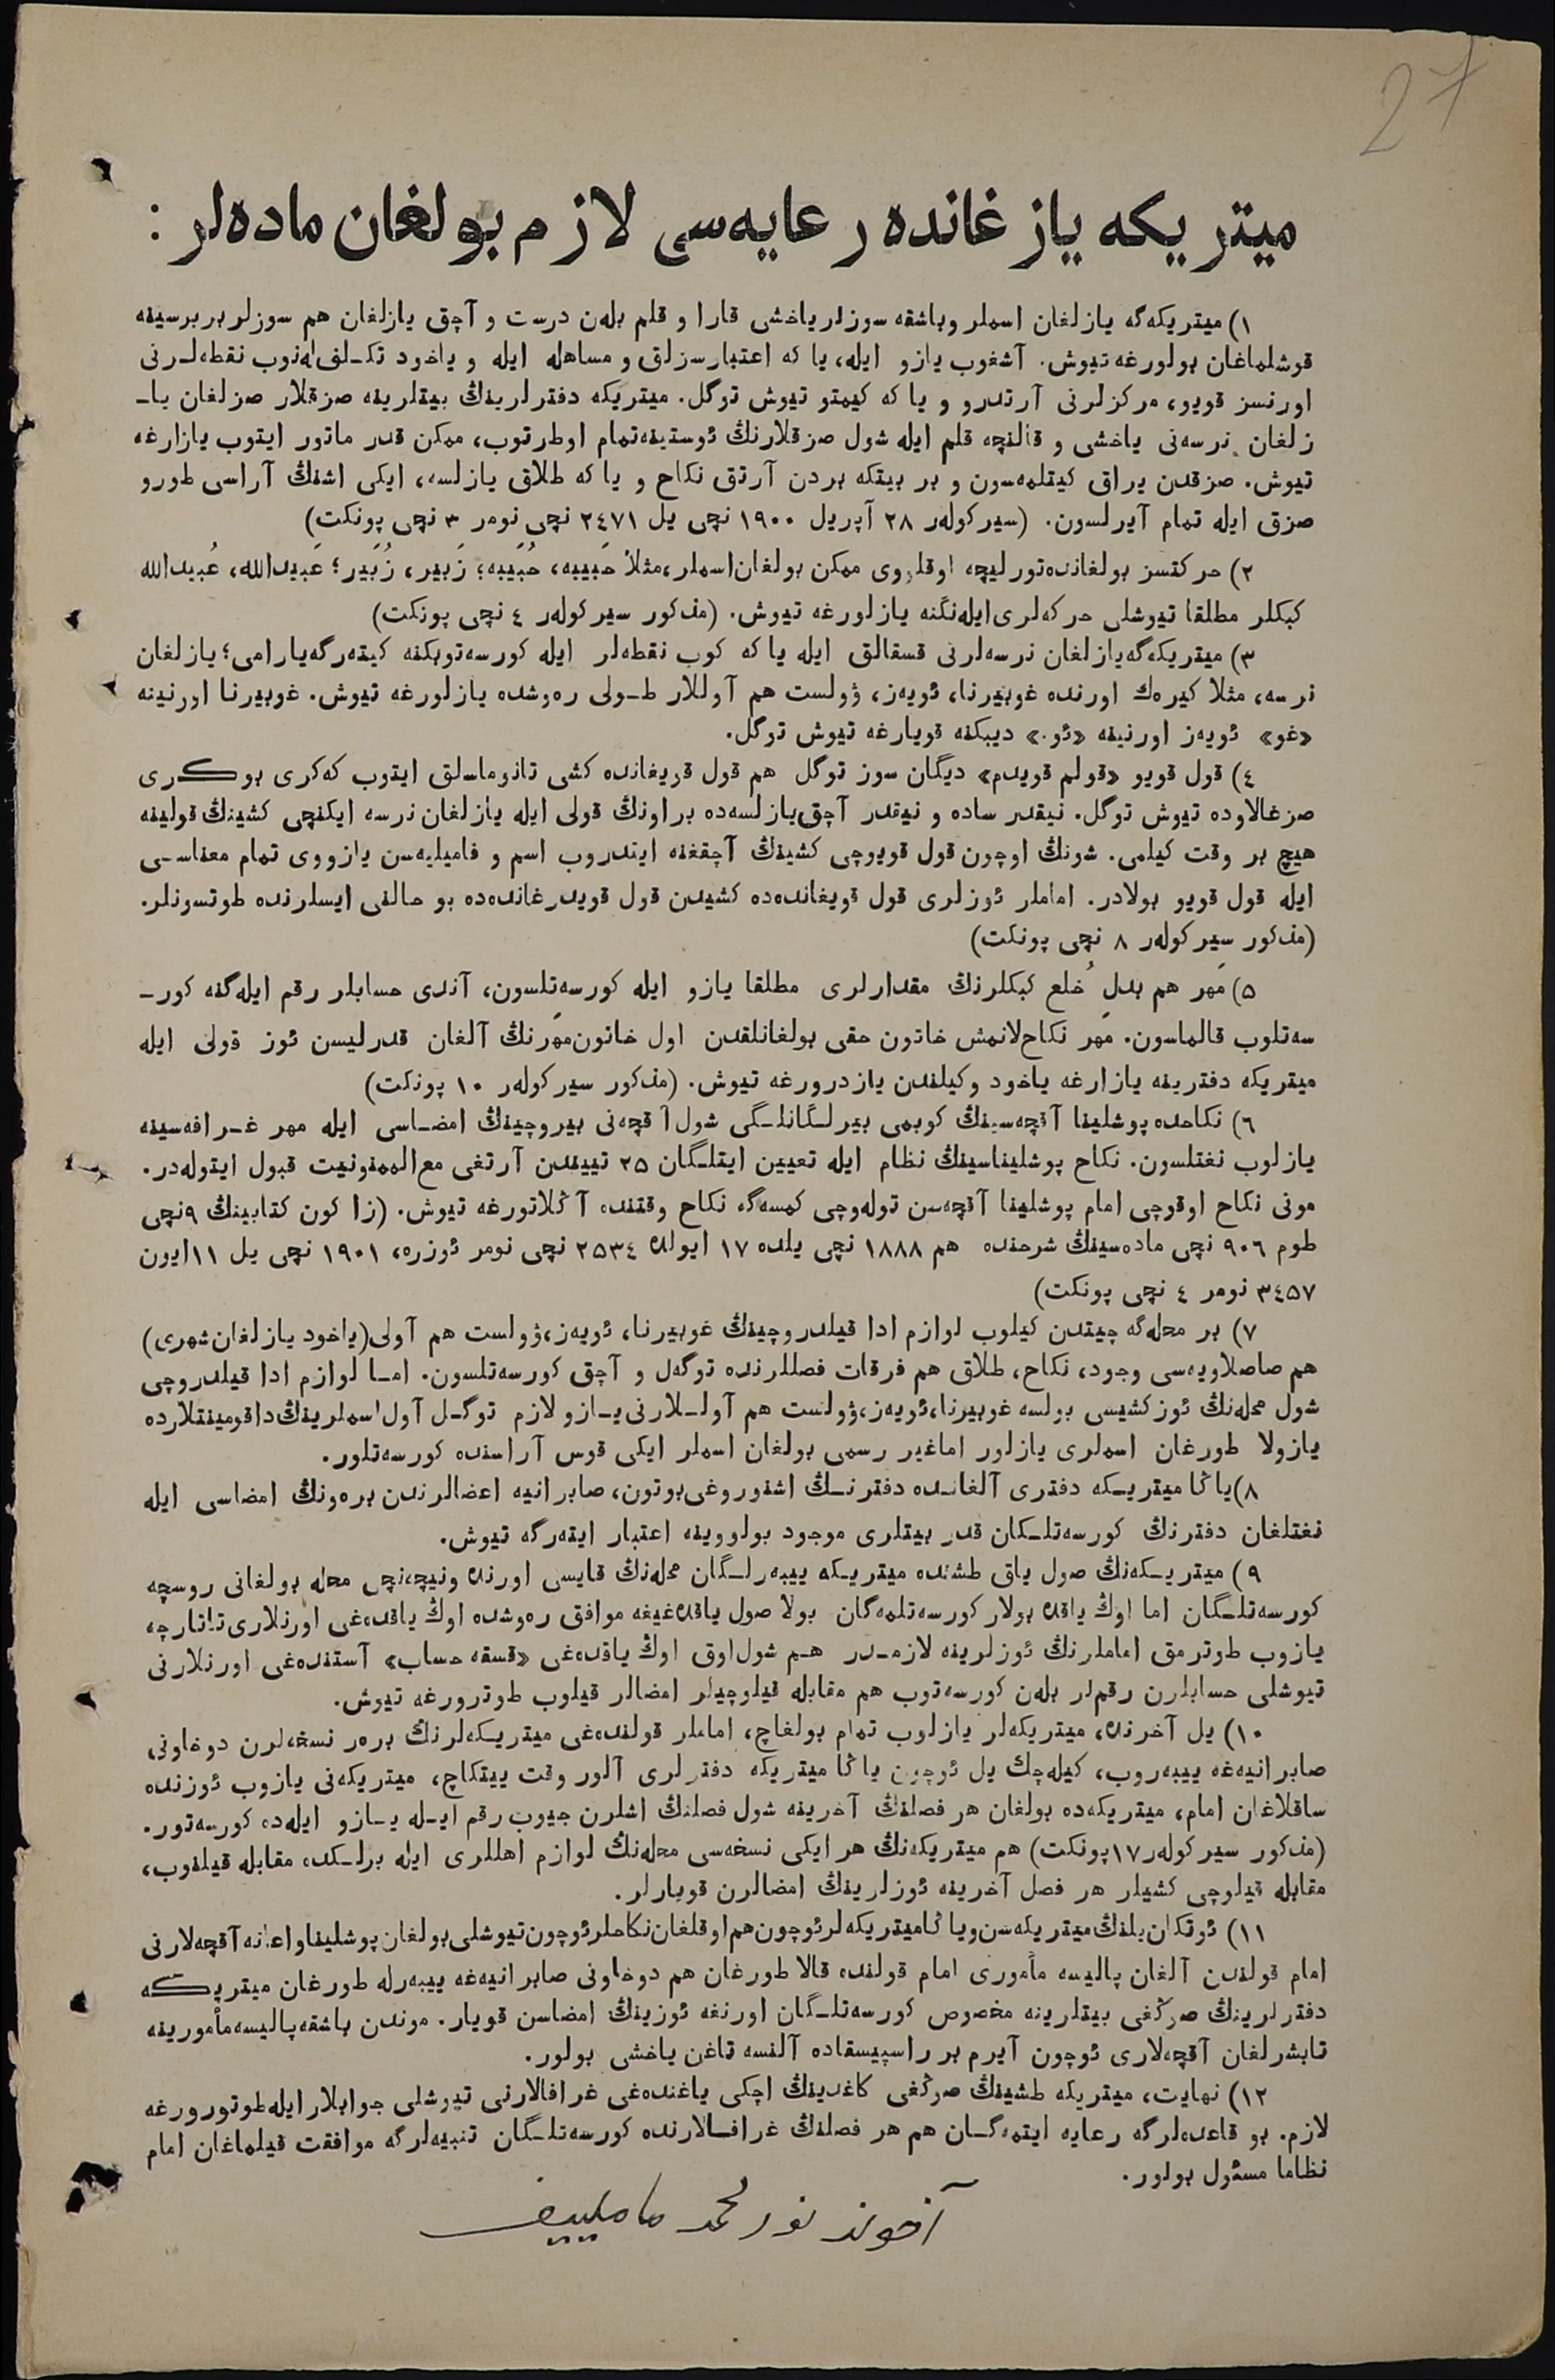 27
ميتريكه يازغانده رعايه‌سى لازم بولغان ماده‌لر :
١) ميتريكه‌گه يازلغان اسملر وباشقه سوزلر ياخشى قارا و قلم بله‌ن درست و آچق يازلغان هم سوزلر بربرسينه
قوشلماغان بولورغه تيوش. آشغوب يازو ايله، يا كه اعتبارسزلق و مساهله ايله و ياخود تكـلف‌له‌نوب نقطه‌لـرنى
اورنسز قويو، مركزلرنى آرتدرو و يا كه كيمتو تيوش توگل. ميتريكه دفترلرينڭ بيتلرينه صزقلار صزلغان ياـ
زلغان نرسه‌نى ياخشى و قالنچه قلم ايله شول صزقلارنڭ ئوستينه‌تمام اوطرتوب، ممكن قدر ماتور ايتوب يازارغه
تيوش. صزقدن يراق كيتلمه‌سون و بر بيتكه بردن آرتق نكاح و يا كه طلاق يازلسه، ايكى اشنڭ آراسى طورو
صزق ايله تمام آيرلسون. (سيركوله‌ر ٢٨ آپريل ١٩٠٠ نچى يل ٢٤٧١ نچى نومر ٣ نچى پونكت)
٢) حركتسز بولغانده‌تورليچه اوقلووى ممكن بولغان‌اسملر، مثلاً حَبيبه، حُبَيبه؛ زَبير، زُبَير؛ عَبيدالله، عُبيدالله
كبكلر مطلقا تيوشلى حركه‌لرى‌ايله‌نگنه يازلورغه تيوش. (مذكور سيركوله‌ر ٤ نچى پونكت)
٣) ميتريكه‌گه‌يازلغان نرسه‌لرنى قسقالق ايله يا كه كوب نقطه‌لر ايله كورسه‌توبكنه كيته‌رگه‌يارامى؛ يازلغان
نرسه، مثلا كيره‌ك اورنده غوبيرنا، ئويه‌ز، ۋولست هم آوللار طـولى ره‌وشده يازلورغه تيوش. غوبيرنا اورنينه
«غو» ئويه‌ز اورنينه «ئو.» ديبكنه قويارغه تيوش توگل.
٤) قول قويو «قولم قويدم» ديگان سوز توگل هم قول قويغانده كشى تانوماسلق ايتوب كه‌كرى بوكـرى
صزغالاوده تيوش توگل. نيقدر ساده و نيقدر آچق‌يازلسه‌ده براونڭ قولى ايله يازلغان نرسه ايكنچى كشينڭ قولينه
هيچ بر وقت كيلمى. شونڭ اوچون قول قويوچى كشينڭ آچقغنه ايتدروب اسم و فاميليه‌سن يازووى تمام معناسـى
ايله قول قويو بولادر. اماملر ئوزلرى قول قويغانده‌ده كشيدن قول قويدرغانده‌ده بو حالنى ايسلرنده طوتسونلر.
(مذكور سيركوله‌ر ٨ نچى پونكت)
٥) مَهر هم بدلِ خُلع كبكلرنڭ مقدارلرى مطلقا يازو ايله كورسه‌تلسون، آندى حسابلر رقم ايله‌گنه كورـ
سه‌تلوب قالماسون. مَهر نكاح‌لانمش خاتون حقى بولغانلقدن اول خاتون‌مَهرنڭ آلغان قدرليسن ئوز قولى ايله
ميتريكه دفترينه يازارغه ياخود وكيلندن يازدرورغه تيوش. (مذكور سيركوله‌ر ١٠ پونكت)
٦) نكاحده پوشلينا آقچه‌سينڭ كوبمى بيرلـگانلـگى شول آقچه‌نى بيروچينڭ امضـاسى ايله مهر غـرافه‌سينه
يازلوب نغتلسون. نكاح پوشليناسينڭ نظام ايله تعيين ايتلـگان ٢٥ تييندن آرتغى مع‌الممنونيت قبول ايتوله‌در.
مونى نكاح اوقوچى امام پوشلينا آقچه‌سن توله‌وچى كمسه‌گه نكاح وقتنده آڭلاتورغه تيوش. (زاكون كتابينڭ ٩نچى
طوم ٩٠٦ نچى ماده‌سينڭ شرحنده هم ١٨٨٨ نچى يلده ١٧ ايولده ٢٥٣٤ نچى نومر ئوزره، ١٩٠١ نچى يل ١١ايون
٣٤٥٧ نومر ٤ نچى پونكت)
٧) بر محله‌گه چيتدن كيلوب لوازم ادا قيلدروچينڭ غوبيرنا، ئويه‌ز، ۋولست هم آولى (ياخود يازلغان‌شهرى)
هم صاصلاويه‌سى وجود، نكاح، طلاق هم فرقات فصللرنده توگه‌ل و آچق كورسه‌تلسون. امـا لوازم ادا قيلدروچى
شول محله‌نڭ ئوزكشيسى بولسه غوبيرنا، ئويه‌ز، ۋولست هم آولـلارنى‌يـازو لازم توگـل آول‌اسملرينڭ‌داقومينتلارده
يازولا طورغان اسملرى يازلور اماغير رسمى بولغان اسملر ايكى قوس آراسنده كورسه‌تلور.
٨) ياڭا ميتريـكه دفترى آلغانـده دفترنـڭ اشنوروغى‌بوتون، صابرانيه اعضالرندن بره‌ونڭ امضاسى ايله
نغتلغان دفترنڭ كورسه‌تلـكان قدر بيتلرى موجود بولووينه اعتبار ايته‌رگه تيوش.
٩) ميتريـكه‌نڭ صول ياق طشنده ميتريـكه ييبه‌رلـگان محله‌نڭ قايسى اورنده ونيچه‌نچى محله بولغانى روسچه
كورسه‌تلـگان اما اوڭ ياقده بولار كورسه‌تلمه‌گان بولا صول ياقده‌غيغه موافق ره‌وشده اوڭ ياقده‌غى اورنلارى‌تاتارچه
يازوب طوترمق اماملرنڭ ئوزلرينه لازمـدر هـم شول‌اوق اوڭ ياقده‌غى «قسقه حساب» آستنده‌غى اورنلارنى
تيوشلى حسابلرن رقملر بله‌ن كورسه‌توب هم مقابله قيلوچيلر امضالر قيلوب طوترورغه تيوش.
١٠) يل آخرنده، ميتريكه‌لر يازلوب تمام بولغاچ، اماملر قولنده‌غى ميتريـكه‌لرنڭ بره‌ر نسخه‌لرن دوخاونى
صابرانيه‌غه ييبه‌روب، كيله‌چك يل ئوچون ياڭا ميتريكه دفترلرى آلور وقت ييتكاچ، ميتريكه‌نى يازوب ئوزنده
ساقلاغان امام، ميتريكه‌ده بولغان هر فصلنڭ آخرينه شول فصلنڭ اشلرن جيوب رقم ايـله يـازو ايله‌ده كورسه‌تور.
(مذكور سيركوله‌ر ١٧پونكت) هم ميتريكه‌نڭ هر ايكى نسخه‌سى محله‌نڭ لوازم اهللرى ايله برلـكده مقابله قيلنوب،
مقابله قيلوچى كشيلر هر فصل آخرينه ئوزلرينڭ امضالرن قويارلر.
١١) ئوتكان‌يلنڭ‌ميتريكه‌سن‌وياڭاميتريكه‌لرئوچون‌هم‌اوقلغان‌نكاحلرئوچون‌تيوشلى‌بولغان‌پوشليناواعانه‌آقچه‌لارنى
امام قولندن آلغان پاليسه مأمورى امام قولنده قالا طورغان هم دوخاونى صابرانيه‌غه ييبه‌رله طورغان ميتريـكه
دفترلرينڭ صوڭغى بيتلرينه مخصوص كورسه‌تلـگان اورنغه ئوزينڭ امضاسن قويار. موندن باشقه‌پاليسه‌مأمورينه
تابشرلغان آقچه‌لارى ئوچون آيرم بر راسپيسقاده آلنسه تاغن ياخشى بولور.
١٢) نهايت، ميتريكه طشينڭ صوڭغى كاغدينڭ اچكى ياغنده‌غى غرافالارنى تيوشلى جوابلار ايله‌طوتورورغه
لازم. بو قاعده‌لرگه رعايه ايتمه‌گـان هم هر فصلنڭ غرافـالارنده كورسه‌تلـگان تنبيه‌لرگه موافقت قيلماغان امام
نظاما مسئول بولور.
آخوند نورمحمد مامليیف